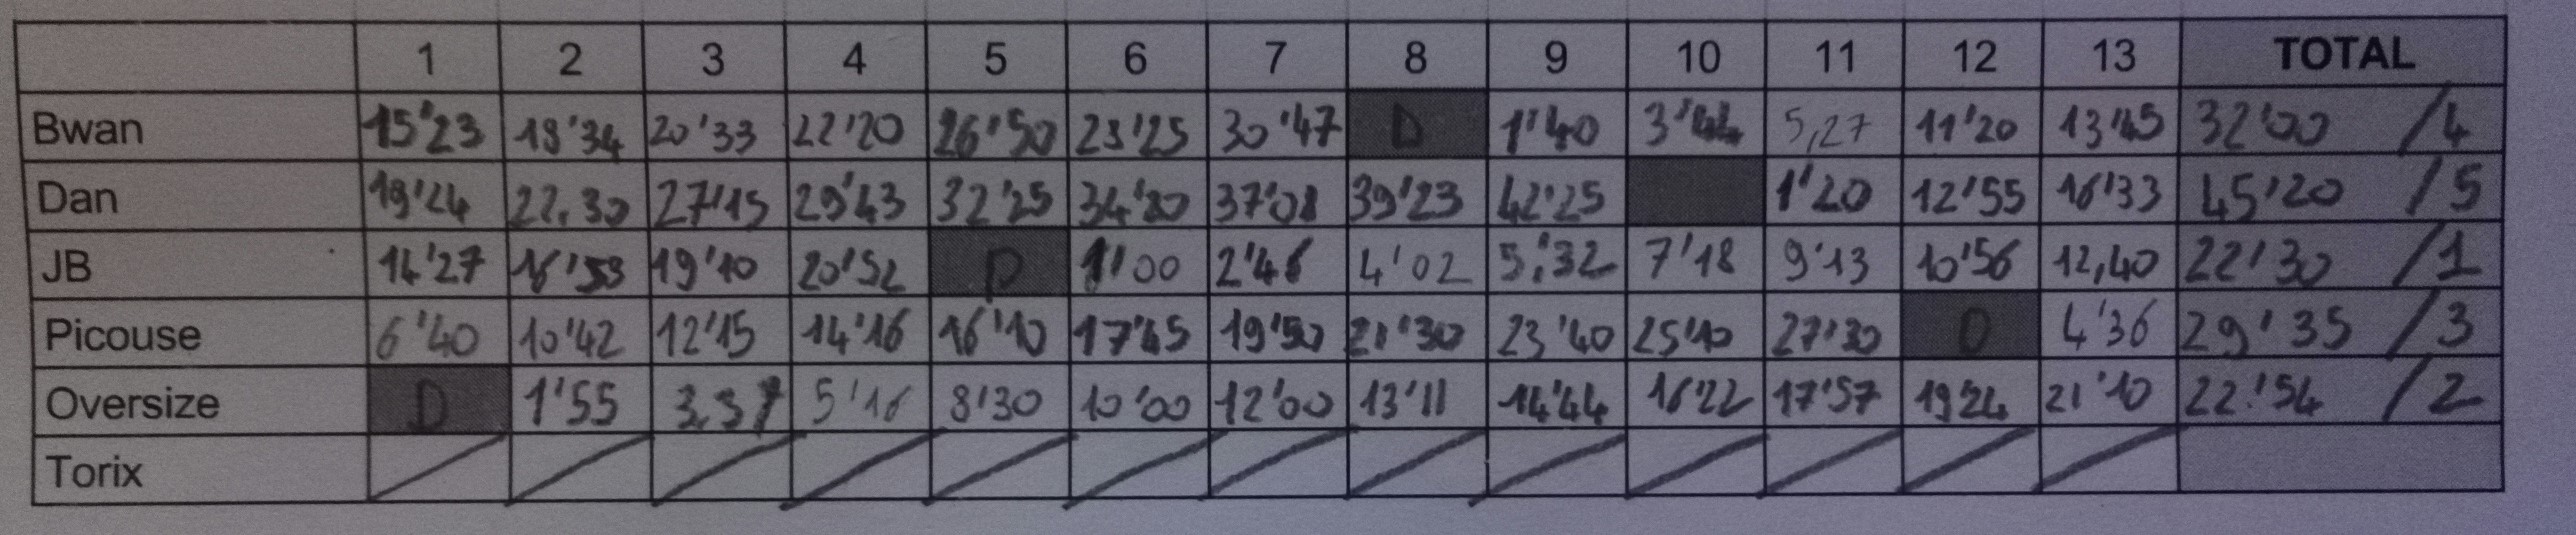 1 2 3 4 5 6 7 8 9 10 11 12 13 TOTAL
Bwan 15'23 18'34 20'33 22'20 26'50 23'25 30'47 D 1'40 3'44 5,27 11'20 13'45 32'00 /4
Dan 19'24 22.30 27'15 29'43 32'25 34'20 37'08 39'23 42'25 1'20 12'55 16'33 45'20 /5
JB 14'27 16'59 19'10 20'52 D 1'00 2'46 4'02 5'32 7'18 9'13 10'56 12,40 22'30 /1
Picouse 6'40 10'42 12'15 14'16 16'10 17'45 19'50 21'30 23'40 25'10 27'30 D 4'36 29'35 /3
Oversize D 1'55 3.37 5'16 8'30 10'00 12'00 13'11 14'44 16'22 17'57 19'24 21'10 22'54 /2
Torix